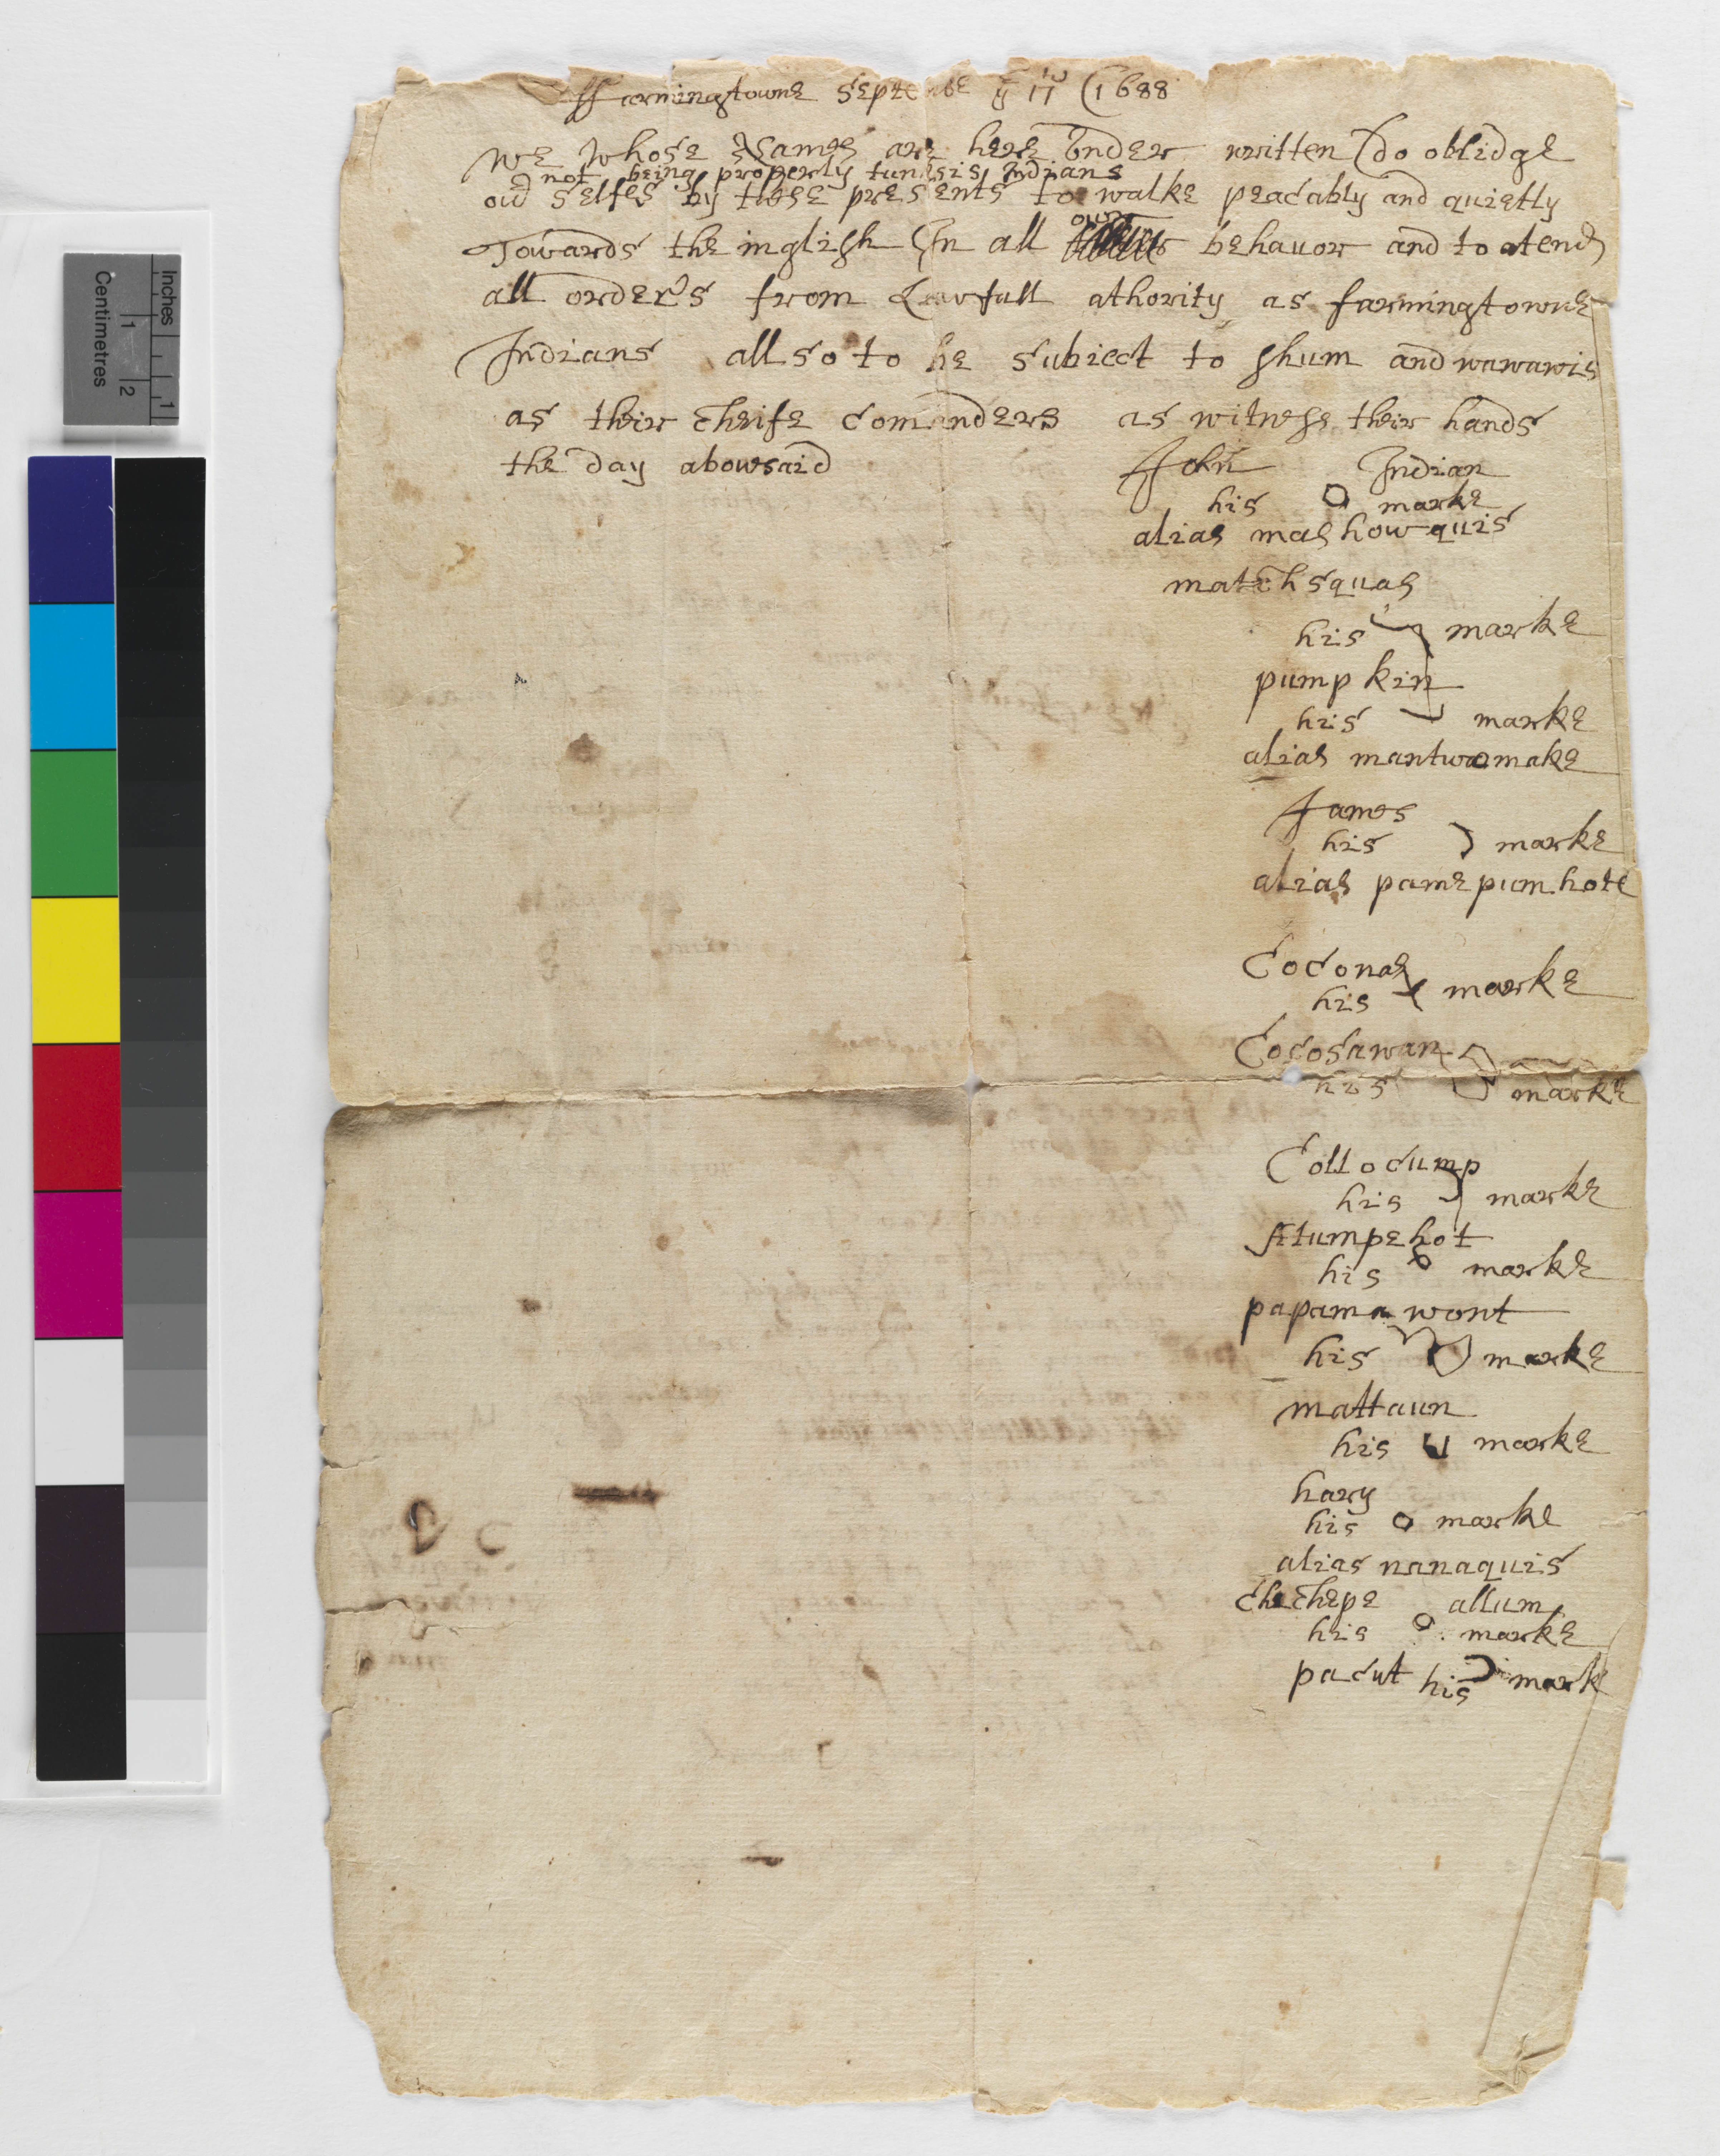 ffarmingtowne Septembe ye 17 (1688
we whose names are here vnder written do oblidge
not being properly tunksis Indians
our selfes by these presents to walke peacably and quietly
Towards the inglish In all our behauor and to atend
all orders from Lawfull athority as farmingtowne
Indians allso to be subiect to shum and wawawis
as their cheife comanders as witness their hands
the day abowsaid
John Indian
his marke
alias mashowquis
matchsquas
his marke
pumpkin
his marke
alias mantwomake
James
his marke
alias pamepumhote
Coconas
his marke
Cocosawan
his marke
Collocump
his marke
Atumpehot
his marke
papamawont
his marke
mattaun
his marke
hary
his marke
alias nanaquis
chechepe allum
his marke
pacut his mark
Inches
1
Centimetres
1
2